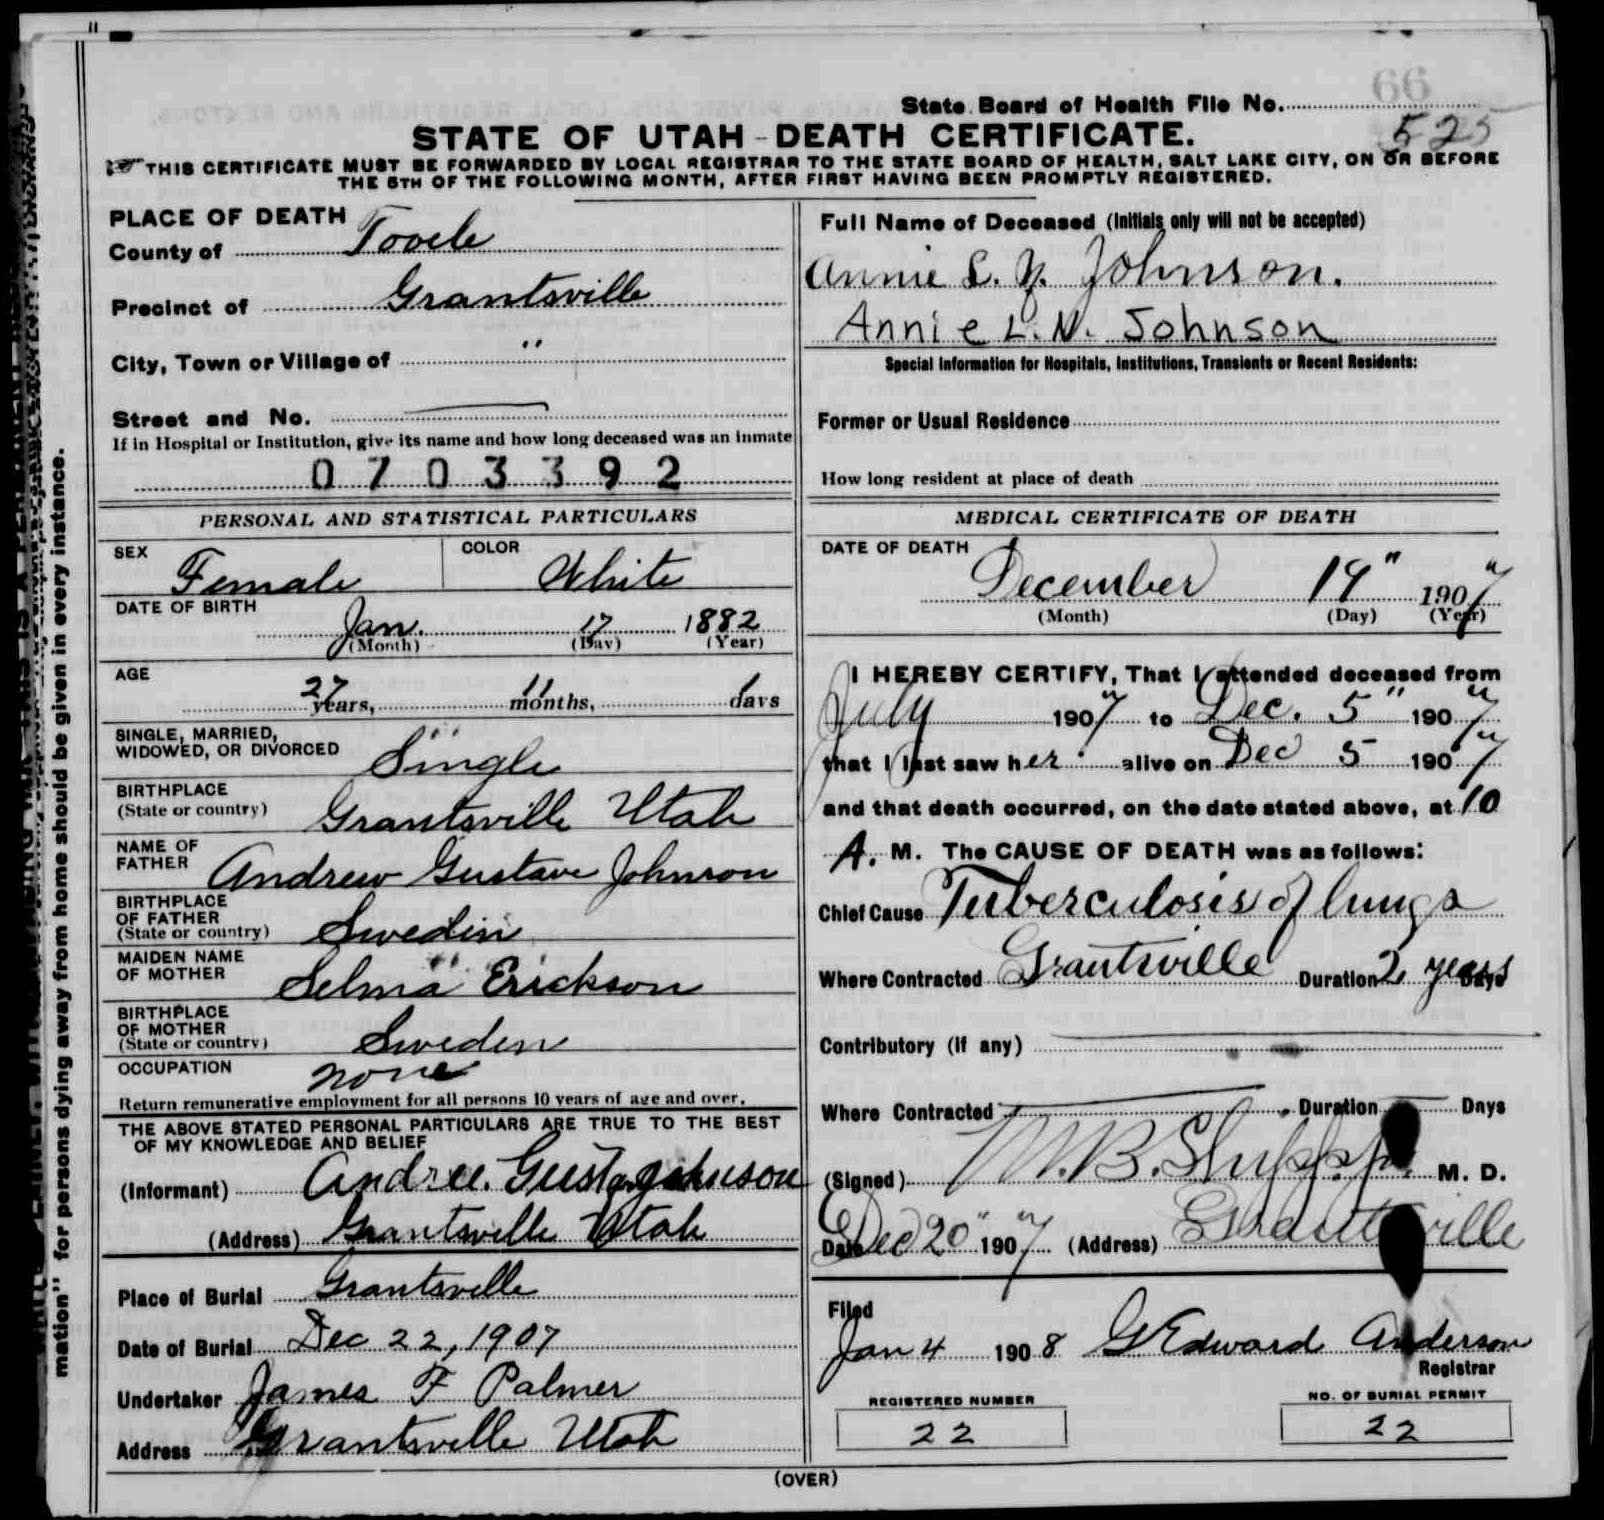 66
State Board of Health File No.
525
STATE OF UTAH - DEATH CERTIFICATE.
THIS CERTIFICATE MUST BE FORWARDED BY LOCAL REGISTRAR TO THE STATE BOARD OF HEALTH, SALT LAKE CITY, ON OR BEFORE
THE 5TH OF THE FOLLOWING MONTH, AFTER FIRST HAVING BEEN PROMPTLY REGISTERED.
PLACE OF DEATH
County of Tooele
Precinct of Grantsville
City, Town or Village of "
Street and No. —
If in Hospital or Institution, give its name and how long deceased was an inmate
0703392
PERSONAL AND STATISTICAL PARTICULARS
SEX Female COLOR White
DATE OF BIRTH
Jan. 17 1882
(Month) (Day) (Year)
AGE
27 years, 11 months, 1 days
SINGLE, MARRIED,
WIDOWED, OR DIVORCED Single
BIRTHPLACE
(State or country) Grantsville Utah
NAME OF
FATHER Andrew Gustave Johnson
BIRTHPLACE
OF FATHER
(State or country) Sweden
MAIDEN NAME
OF MOTHER Selma Erickson
BIRTHPLACE
OF MOTHER
(State or country) Sweden
OCCUPATION none
Return remunerative employment for all persons 10 years of age and over.
THE ABOVE STATED PERSONAL PARTICULARS ARE TRUE TO THE BEST
OF MY KNOWLEDGE AND BELIEF
(Informant) Johnson
(Address) Grantsville Utah
Place of Burial Grantsville
Date of Burial Dec 22, 1907
Undertaker James F Palmer
Address Grantsville Utah
Full Name of Deceased (Initials only will not be accepted)
Annie L. N. Johnson.
Annie L. N. Johnson
Special Information for Hospitals, Institutions, Transients or Recent Residents:
Former or Usual Residence
How long resident at place of death
MEDICAL CERTIFICATE OF DEATH
DATE OF DEATH
December 19" 1907"
(Month) (Day) (Year)
I HEREBY CERTIFY, That I attended deceased from
July 1907" to Dec. 5" 1907"
that I last saw her alive on Dec 5 1907"
and that death occurred, on the date stated above, at 10
A. M. The CAUSE OF DEATH was as follows:
Chief Cause Tuberculosis of lungs
Where Contracted Grantsville Duration 2 years Days
Contributory (if any)
Where Contracted Duration Days
(Signed) M. D.
Date Dec 20" 1907" (Address) Grantsville
Filed
Jan 4 1908 G Edward Anderson
Registrar
REGISTERED NUMBER
22
NO. OF BURIAL PERMIT
22
(OVER)
mation" for persons dying away from home should be given in every instance.